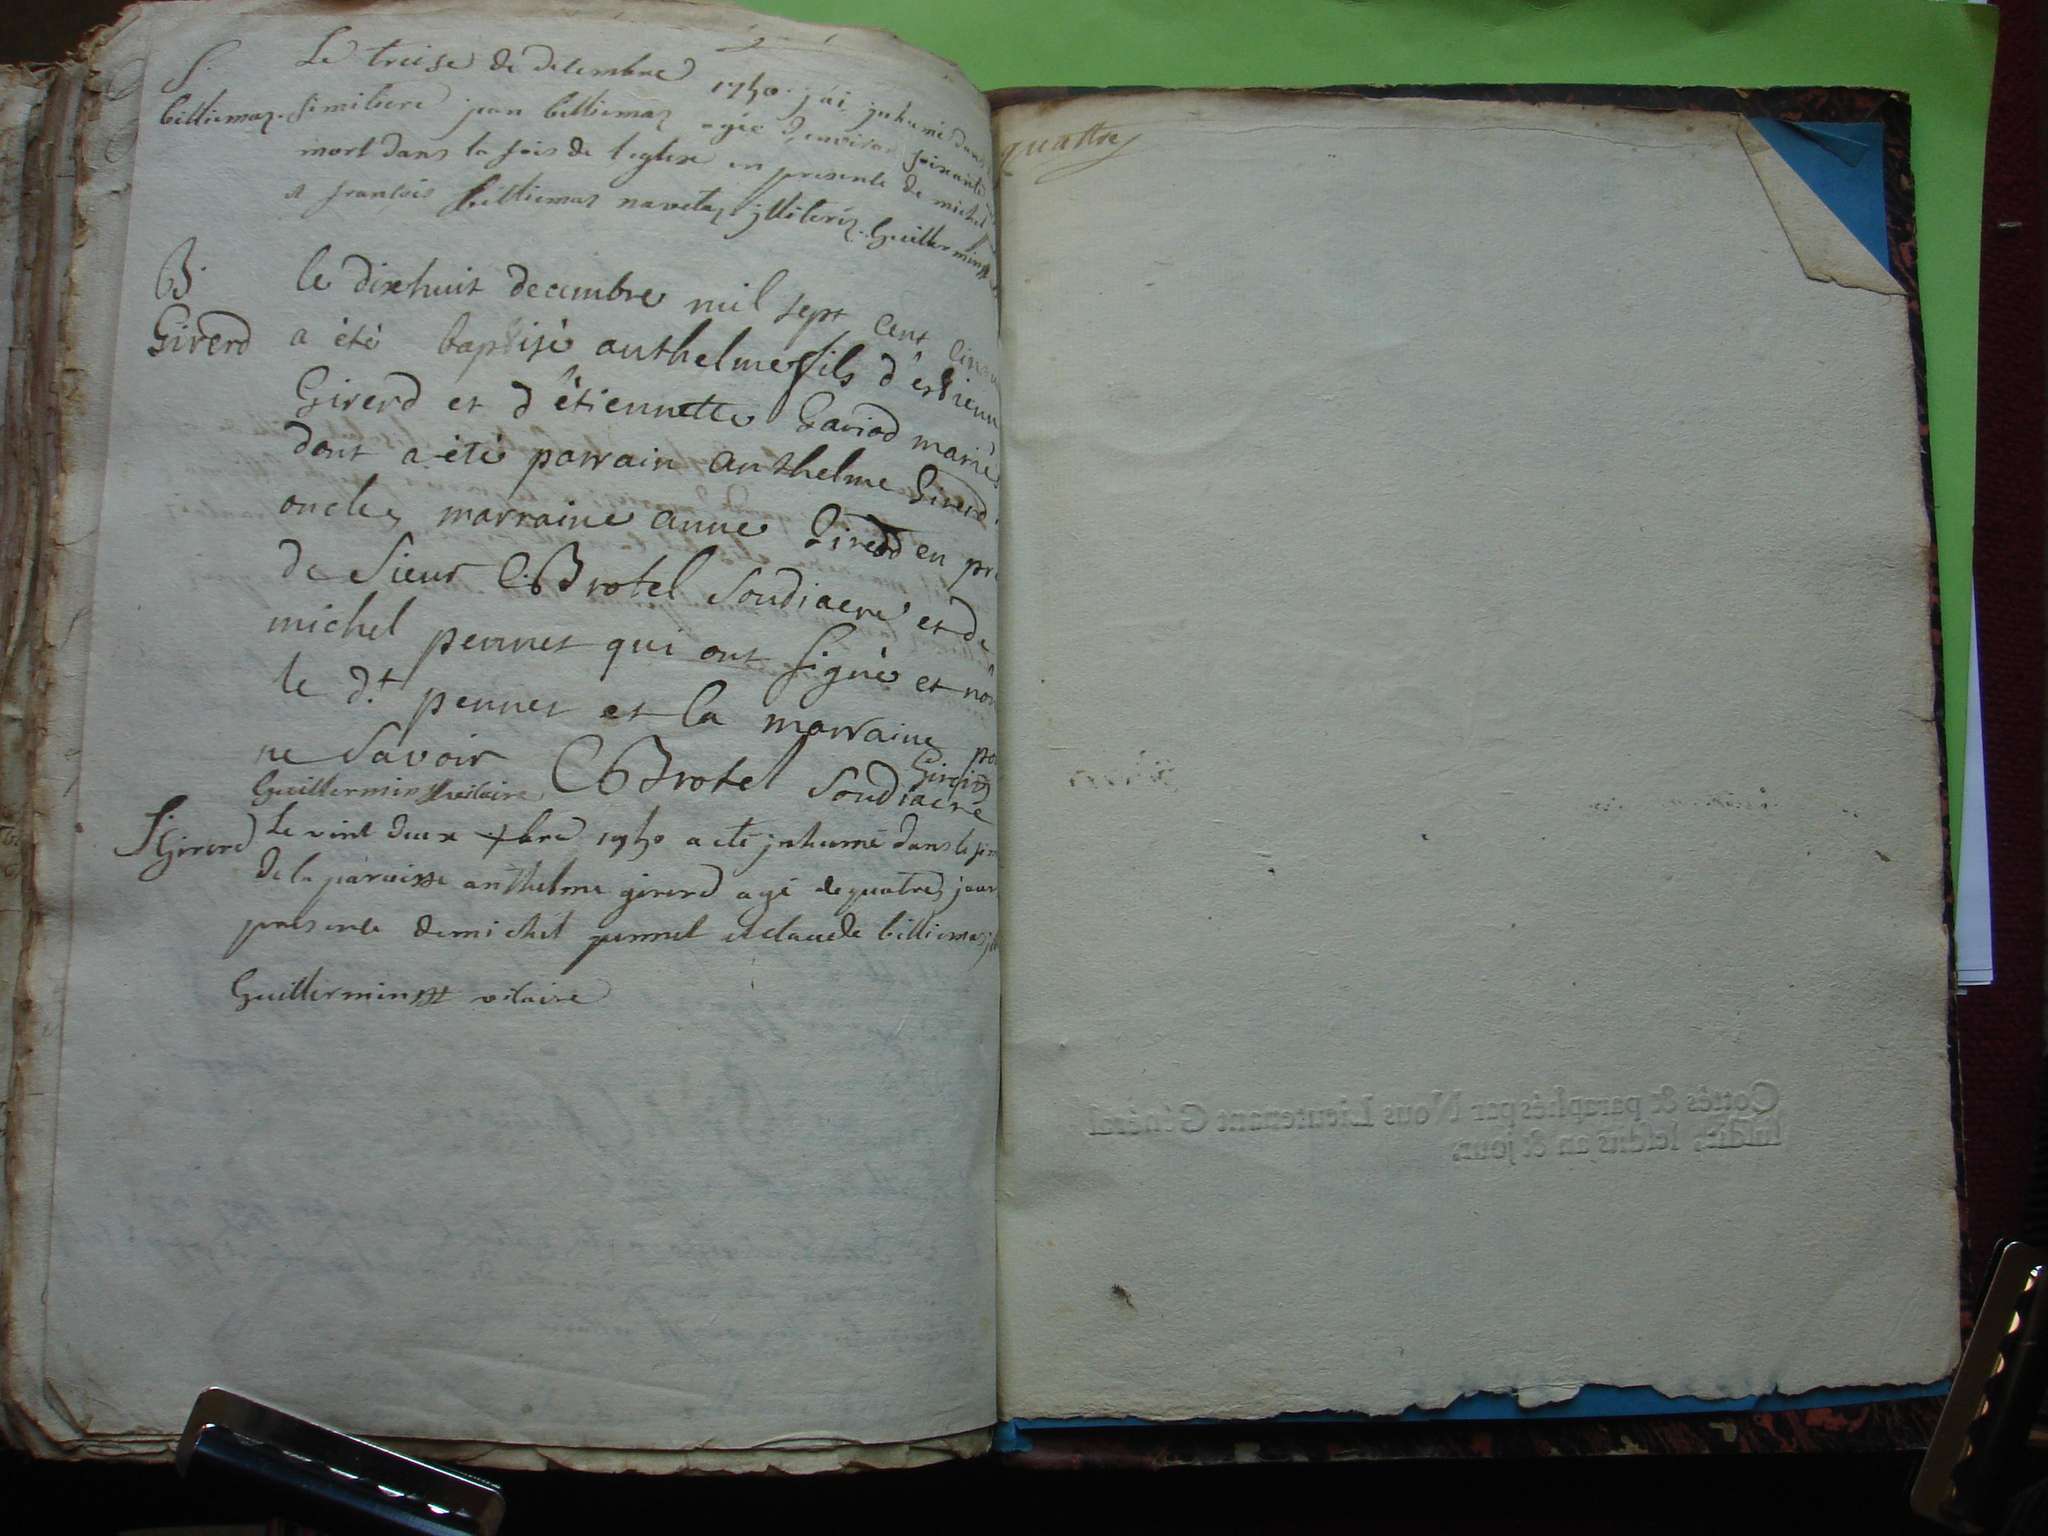 S.
billiemaz.
Le treise de decembre 1750. j'ai inhumé dans
simitiere jean billiemaz agée d'environ soixante
mort dans la fois de l'eglise en presence de michel
et françois billiemaz illiterés. Guillermin
B.
Girerd
le dixhuit decembre mil sept cent
a été baptisé anthelme fils d'estienne
Girerd et d'étiennette Gaviod mariés
dont a été parrain anthelme Girerd
oncle, marraine anne Girerd en
de Sieur C. Brotel Soudiacre et de
michel pennet qui ont signé et non
le d.t pennet et la marraine pour
ne savoir CBrotel Soudiacre
Guillermin vicaire
S. Girerd
Le vint deux Xbre 1750 a eté inhumé dans le
de la paroisse anthelme girerd agé de quatres jours
presence de michel pennet et claude billiemaz
Guillermin vicaire
quattre
Cottés & paraphés par Nous Lieutenant Général
susdit, lesdits an & jour.